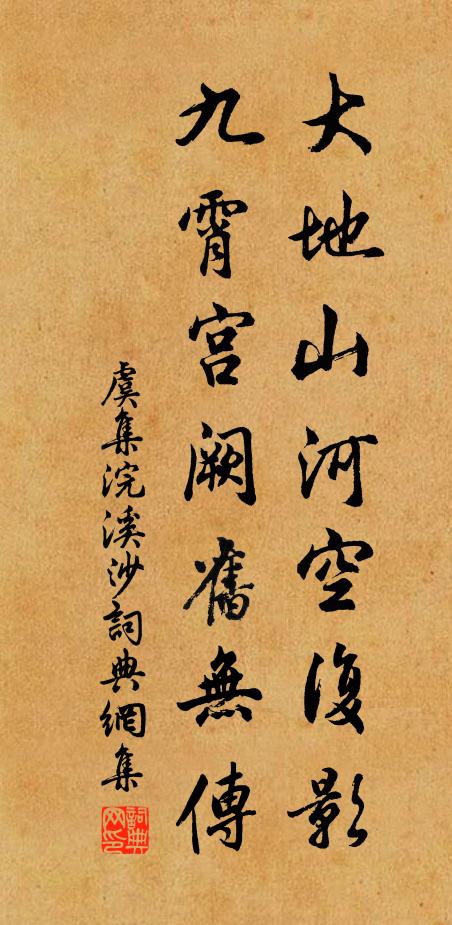 大地山河空復影
九霄宮闕舊無傳
虞集浣溪沙詞典網集
詞典网印